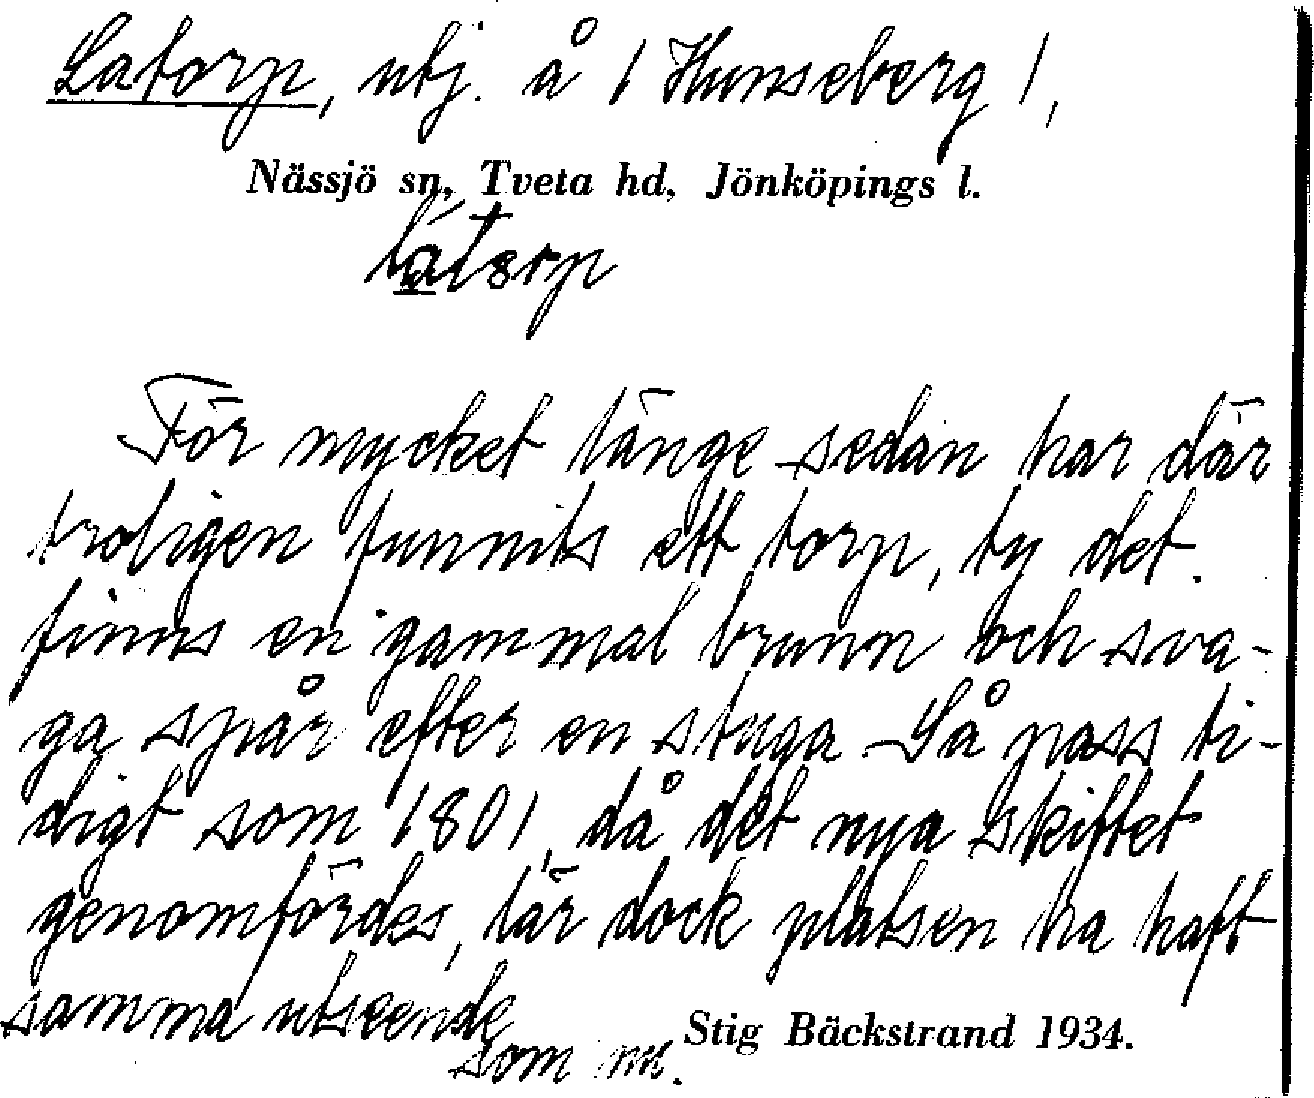 Latorp, utj. å / Hunseberg /,
Nässjö sn, Tveta hd, Jönköpings l.
För mycket länge sedan har där
troligen funnits ett torp, ty det
finns en gammal brunn och sva-
ga spår efter en stuga. Så pass ti-
digt som 1801, då det nya skiftet
genomfördes, lär dock platsen ha haft
samma utseende
som nu.
Stig Bäckstrand 1934.